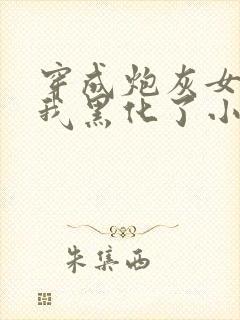 穿成炮灰女
我黑化了小
朱集西